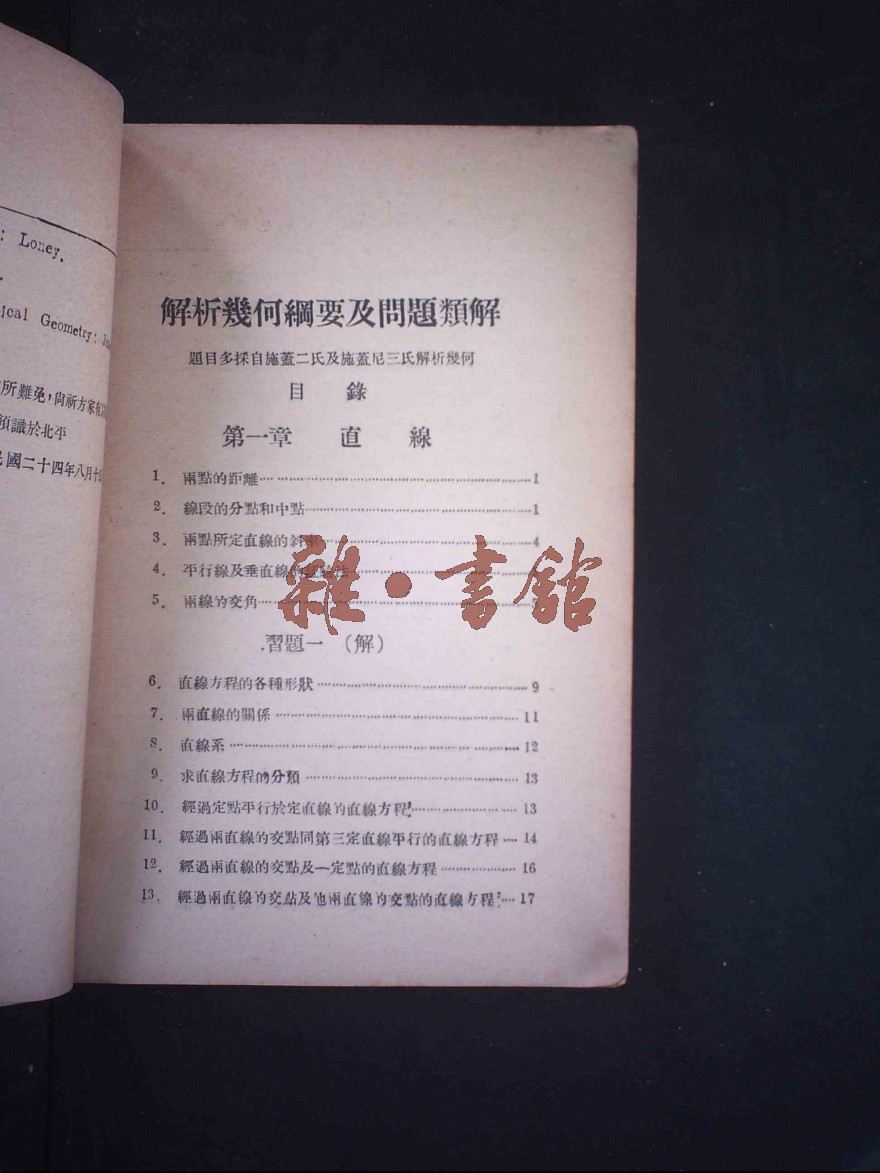 : Loney.
ical Geometry:
所難免，尙祈方家
識於北平
民國二十四年八月十
解析幾何綱要及問題類解
題目多採自施蓋二氏及施蓋尼三氏解析幾何
目 錄
第一章 直 線
1. 兩點的距離 1
2. 線段的分點和中點 1
3. 兩點所定直線的斜 4
4. 平行線及垂直線的
5. 兩線的交角
習題一 (解)
6. 直線方程的各種形狀 9
7. 兩直線的關係 11
8. 直線系 12
9. 求直線方程的分類 13
10. 經過定點平行於定直線的直線方程 13
11. 經過兩直線的交點同第三定直線平行的直線方程 14
12. 經過兩直線的交點及一定點的直線方程 16
13. 經過兩直線的交點及他兩直線的交點的直線方程 17
雜·書館